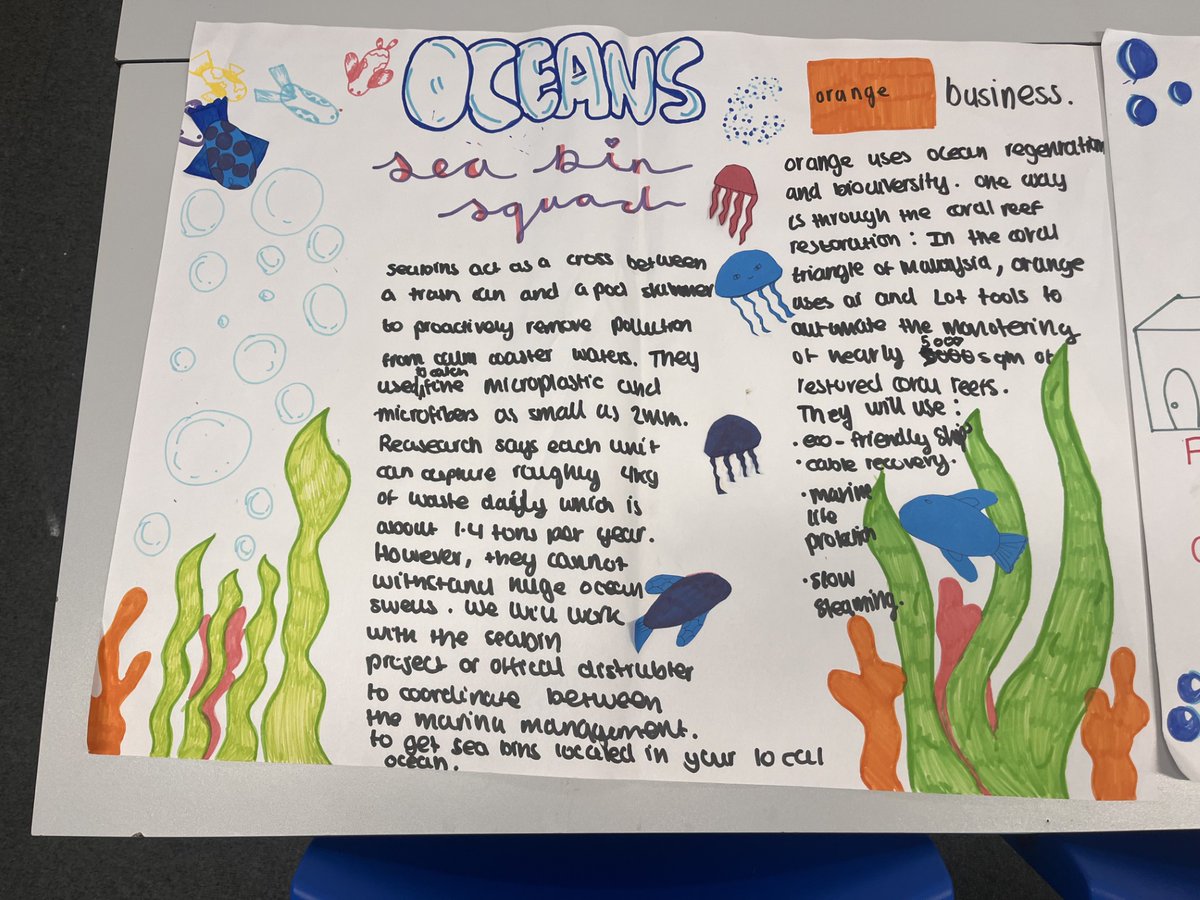 OCEANS
sea bin
squad
seabins act as a cross between
a trash can and a pool skimmer
to proactively remove pollution
from calm coaster waters. They
used to catch fine microplastic and
microfibers as small as 2mm.
Reasearch says each unit
can capture roughly 4kg
of waste daily which is
about 1.4 tons per year.
However, they cannot
withstand huge ocean
swells. We will work
with the seabin
project or offical distrubter
to coordinate between
the marina management.
to get sea bins located in your local
ocean.
orange business.
orange uses ocean regenration
and biodiversity. One way
is through the coral reef
restoration: In the coral
triangle of Malaysia, orange
uses ai and Lot tools to
automate the monotering
of nearly 5000 sqm of
restored coral reefs.
They will use:
• eco-friendly ship
• cable recovery.
• marine
life
protection
• slow
steaming.